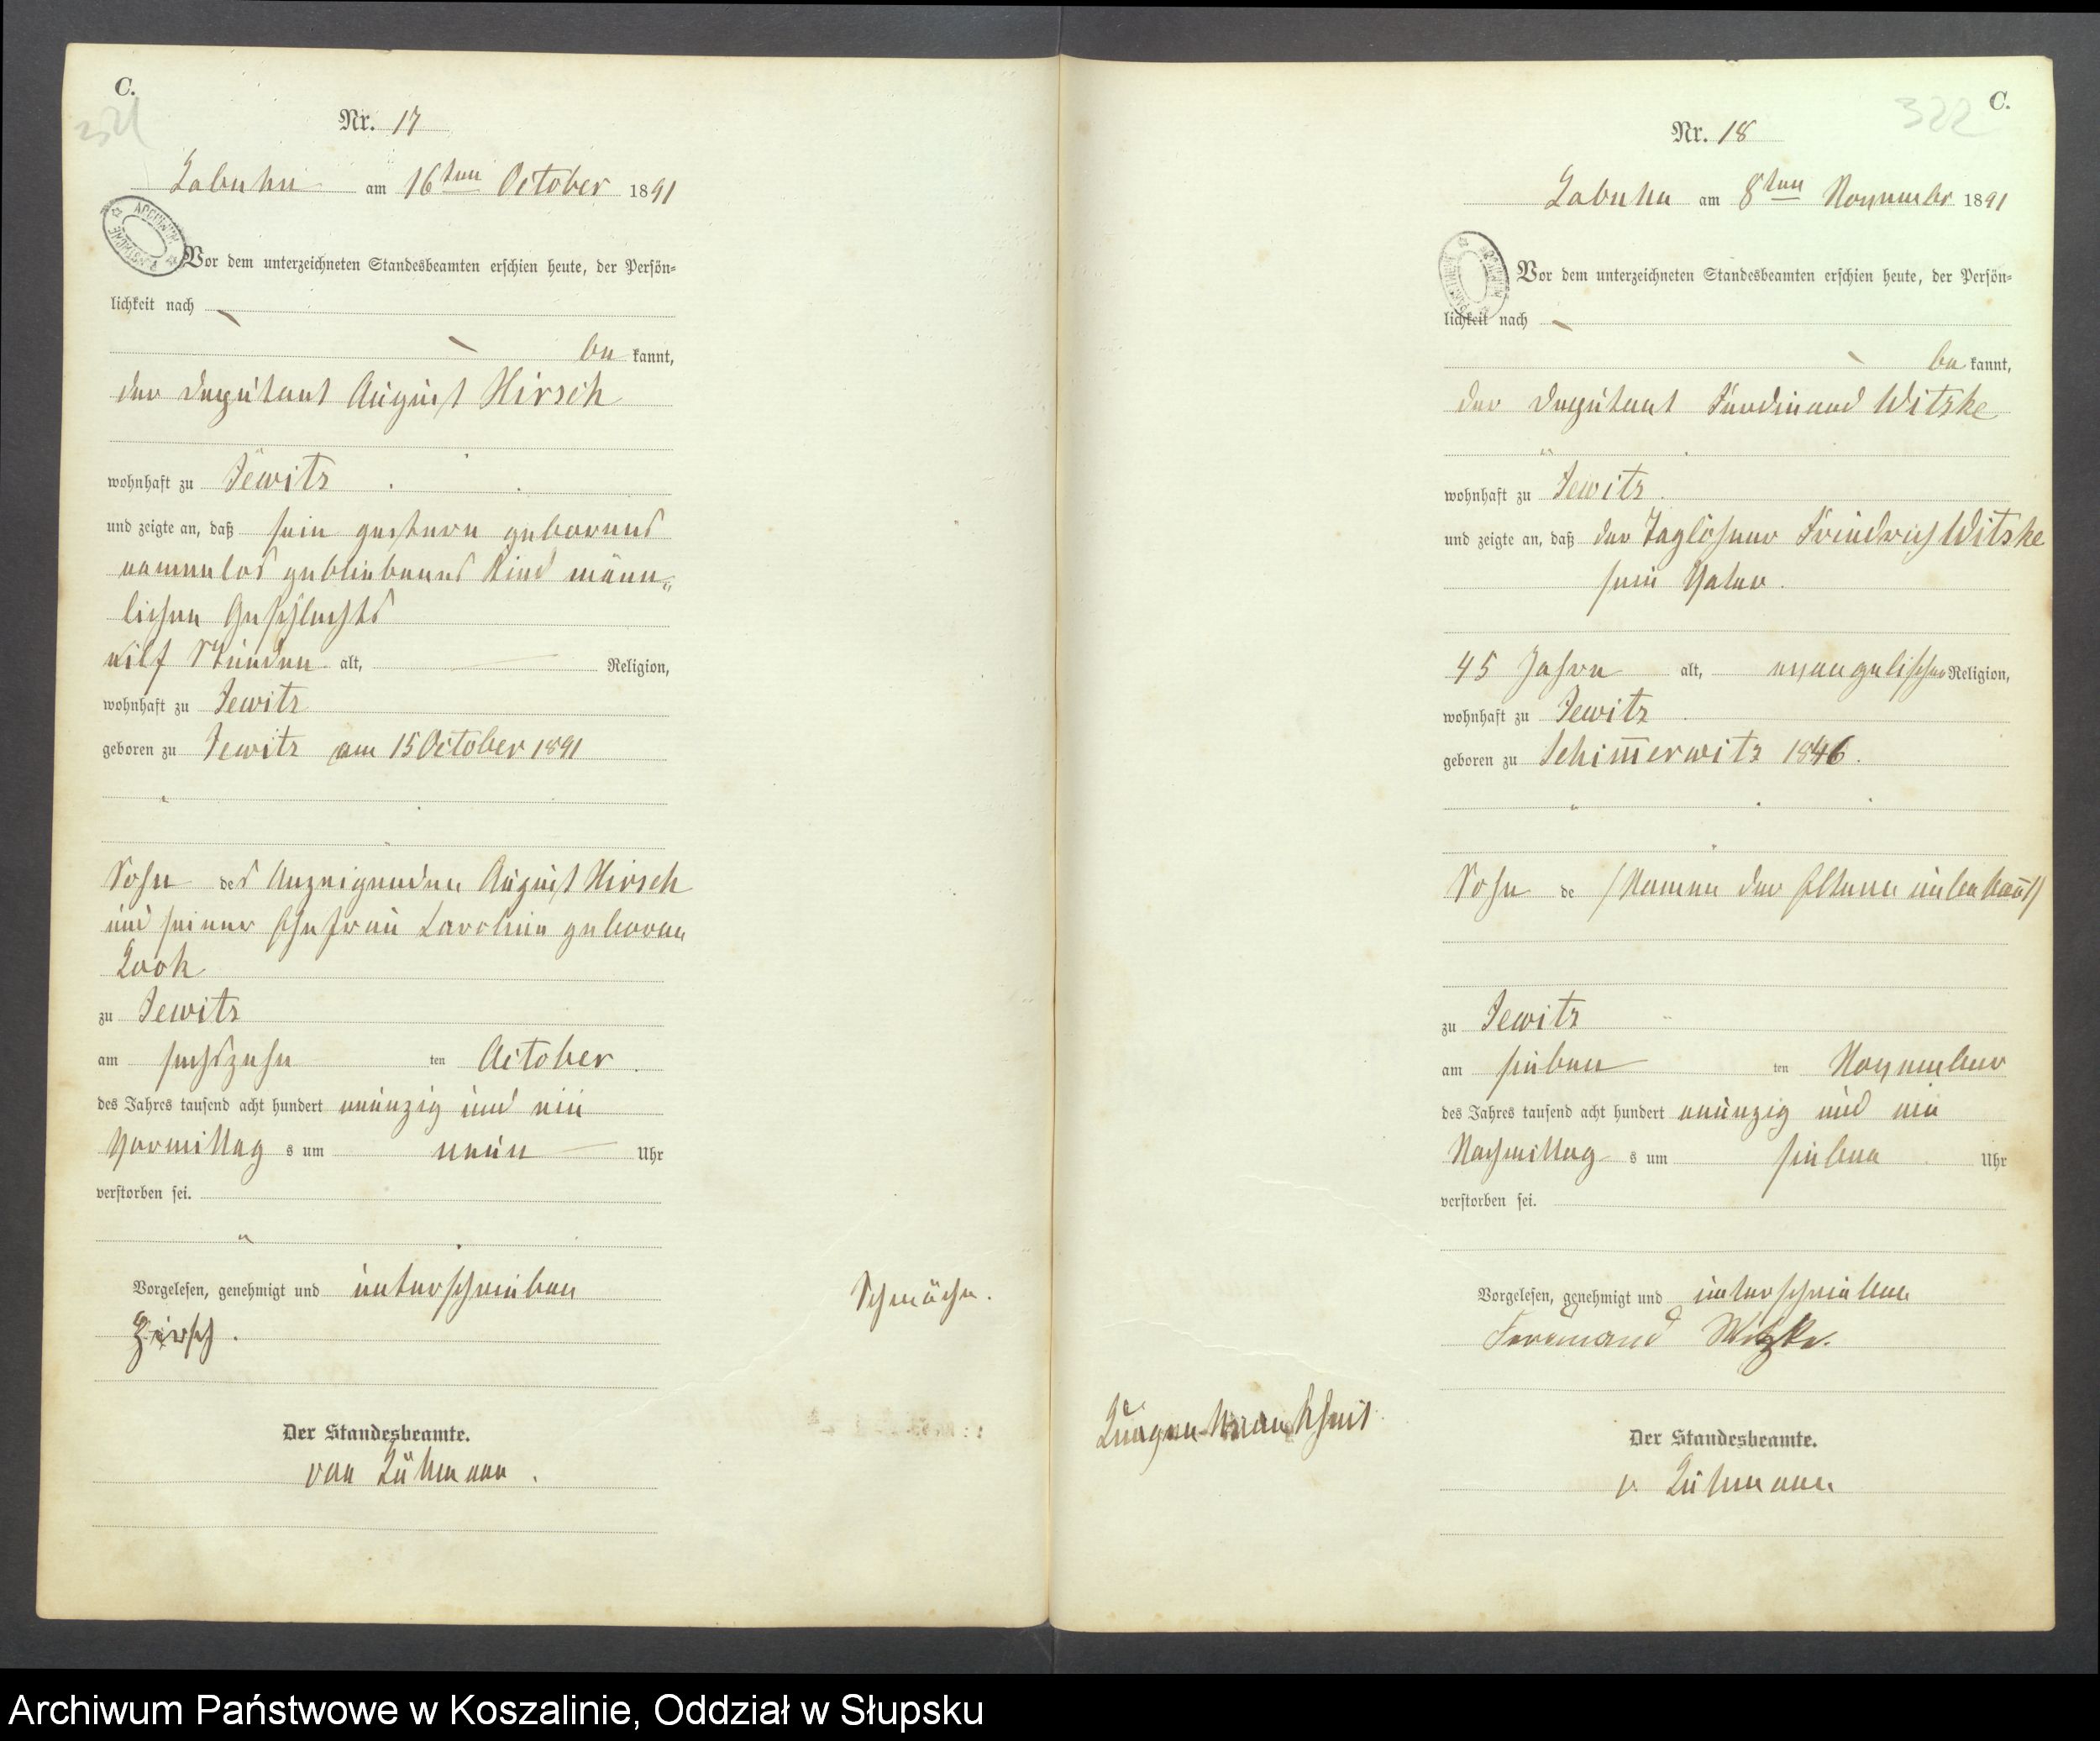 C.
321
Nr. 17
Labuhn am 16ten October 1891
Vor dem unterzeichneten Standesbeamten erschien heute, der Persön-
lichkeit nach
be kannt,
der Deputant August Hirsch
wohnhaft zu Jewitz
und zeigte an, daß sein gestern geborenes
namenlos gebliebenes Kind männ-
lichen Geschlechts
eilf Stunden alt, Religion,
wohnhaft zu Jewitz
geboren zu Jewitz am 15 October 1891
Sohn des Anzeigenden August Hirsch
und seiner Ehefrau Caroline geboren
zu Jewitz
am sechszehn ten October
des Jahres tausend acht hundert neunzig und ein
Vormittag s um neun Uhr
verstorben sei.
Vorgelesen, genehmigt und unterschrieben
Hirsch.
Schwäche.
Der Standesbeamte.
von Lühmann.
C.
322
Nr. 18
Labuhn am 8ten November 1891
Vor dem unterzeichneten Standesbeamten erschien heute, der Persön-
lichkeit nach
be kannt,
der Deputant Ferdinand Witzke
wohnhaft zu Jewitz
und zeigte an, daß der Taglöhner Friedrich Witzke
sein Vater.
45 Jahre alt, evangelischer Religion,
wohnhaft zu Jewitz
geboren zu Schim̅erwitz 1846.
Sohn de /Namen der Eltern unbekan̅t/
zu Jewitz
am sieben ten November
des Jahres tausend acht hundert neunzig und ein
Nachmittag s um sieben Uhr
verstorben sei.
Vorgelesen, genehmigt und unterschrieben
Ferdinand Witzke.
Lungen-Krankheit
Der Standesbeamte.
v. Lühmann
Archiwum Państwowe w Koszalinie, Oddział w Słupsku